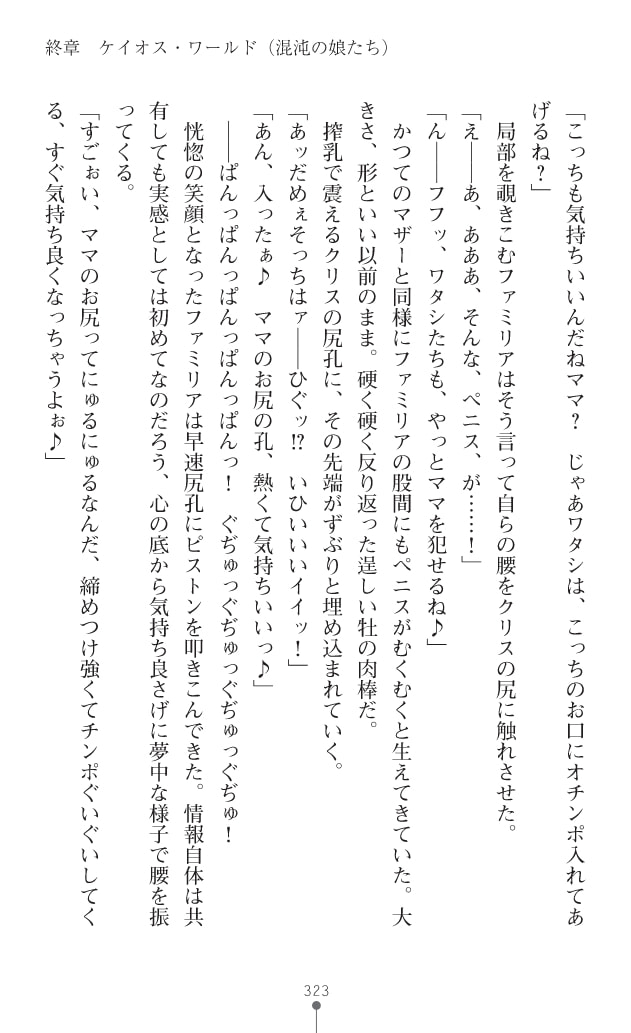 終章　ケイオス・ワールド（混沌の娘たち）
「こっちも気持ちいいんだねママ？　じゃあワタシは、こっちのお口にオチンポ入れてあ
げるね？」
　局部を覗きこむファミリアはそう言って自らの腰をクリスの尻に触れさせた。
「え――あ、あああ、そんな、ペニス、が……！」
「ん――フフッ、ワタシたちも、やっとママを犯せるね♪」
　かつてのマザーと同様にファミリアの股間にもペニスがむくむくと生えてきていた。大
きさ、形といい以前のまま。硬く硬く反り返った逞しい牡の肉棒だ。
　搾乳で震えるクリスの尻孔に、その先端がずぶりと埋め込まれていく。
「あッだめぇそっちはァ――ひぐッ!?　いひいいいイイッ！」
「あん、入ったぁ♪　ママのお尻の孔、熱くて気持ちいいっ♪」
　――ぱんっぱんっぱんっぱんっぱんっ！　ぐぢゅっぐぢゅっぐぢゅっぐぢゅ！
　恍惚の笑顔となったファミリアは早速尻孔にピストンを叩きこんできた。情報自体は共
有しても実感としては初めてなのだろう、心の底から気持ち良さげに夢中な様子で腰を振
ってくる。
「すごぉい、ママのお尻ってにゅるにゅるなんだ、締めつけ強くてチンポぐいぐいしてく
る、すぐ気持ち良くなっちゃうよぉ♪」
323